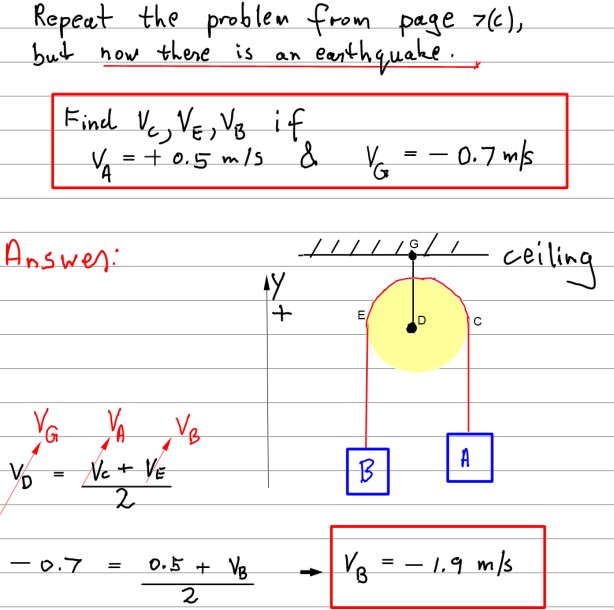 Repeat the problem from page 7(c),
but now there is an earthquake.
Find Vc, VE, VB if
VA = + 0.5 m/s & VG = - 0.7 m/s
Answer:
G
ceiling
y
+
E
D
C
B
A
VG VA VB
VD = Vc + VE
2
- 0.7 = 0.5 + VB
2
→ VB = - 1.9 m/s